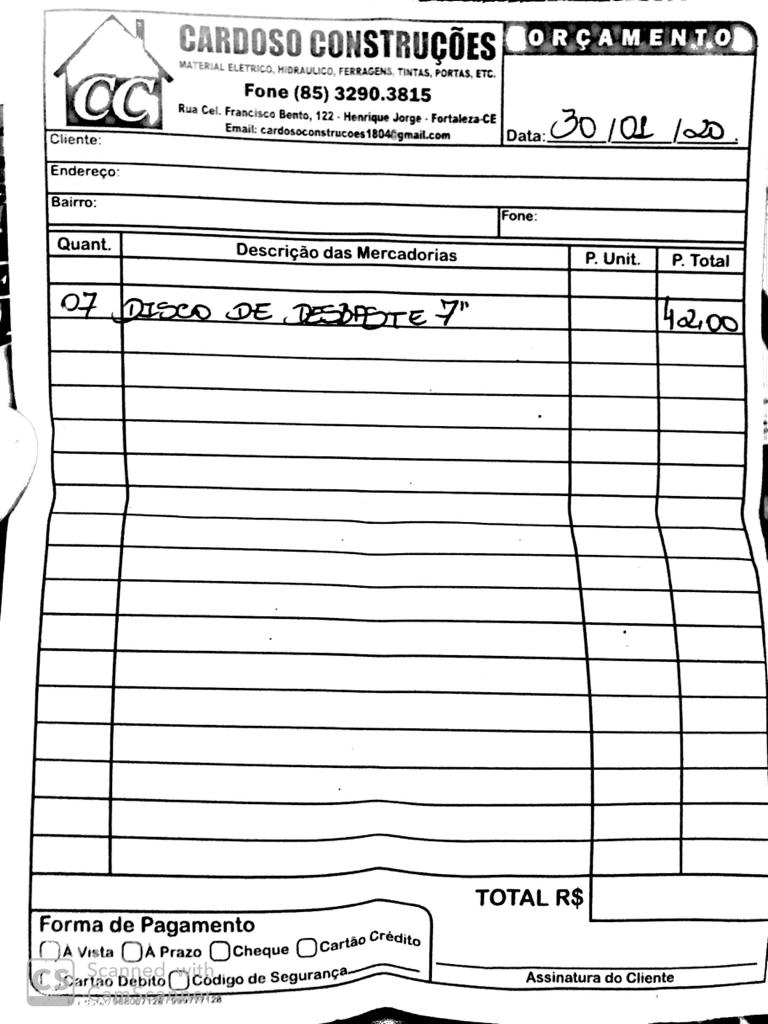 CARDOSO CONSTRUÇÕES
MATERIAL ELETRICO, HIDRAULICO, FERRAGENS, TINTAS, PORTAS, ETC.
Fone (85) 3290.3815
Rua Cel. Francisco Bento, 122 - Henrique Jorge - Fortaleza-CE
Email: cardosoconstrucoes1804@gmail.com
CC
ORÇAMENTO
Data: 30/01/20
Cliente:
Endereço:
Bairro:
Fone:
Quant. Descrição das Mercadorias P. Unit. P. Total
07 DISCO DE DESBASTE 7" 42,00
TOTAL R$
Forma de Pagamento
À Vista À Prazo Cheque Cartão Crédito
Cartão Débito Código de Segurança
Assinatura do Cliente
CS Scanned with
CamScanner